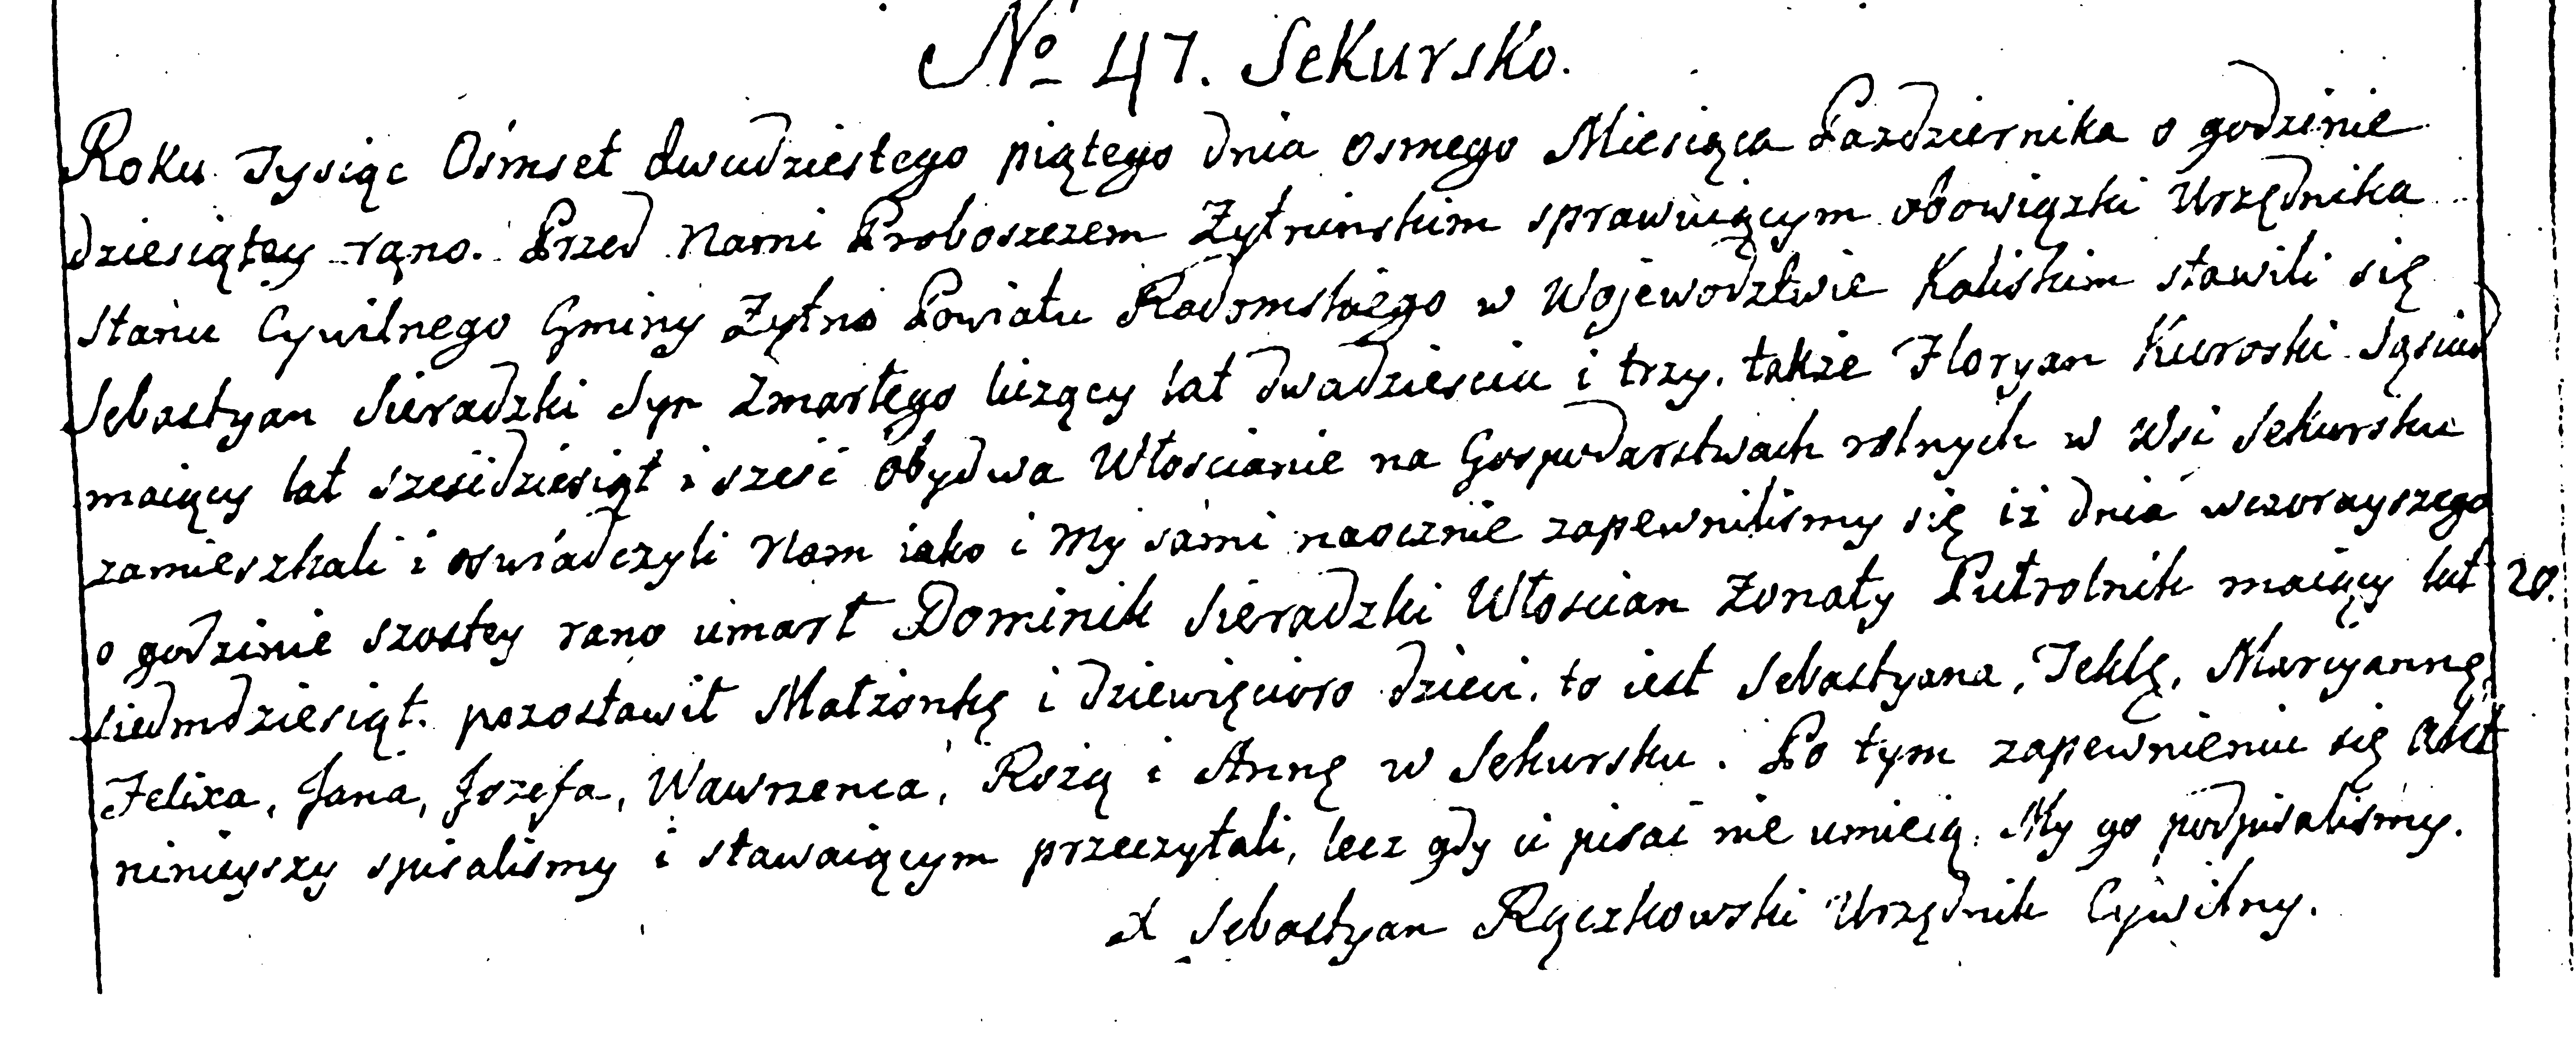 No 47. Sekursko.
Roku Tysiąc Ośmset dwudziestego piątego dnia osmego Miesiąca Pazdziernika o godzinie
dziesiątey rąno. Przed Nami Proboszczem Zytninskim sprawuiącym obowiązki Urzędnika
Stanu Cywilnego Gminy Zytno Powiatu Radomskiego w Wojewodztwie Kaliskim stawili się
Sebastyan Sieradzki Syn Zmarłego liczący lat dwadziesciu i trzy. także Floryan Kuroski Sąsiad
maiący lat sześćdziesiąt i sześć obydwa Włoscianie na Gospodarstwach rolnych w Wsi Sekursku
zamieszkali i oswiadczyli Nam iako i My sami naocznie zapewnilismy się iż dnia wczorayszego
o godzinie szostey rano umarł Dominik Sieradzki Włoscian Zonaty Putrolnik maiący lat 20.
siedmdziesiąt. pozostawił Małżonkę i dziewięcioro dzieci. to iest Sebastyana, Teklę, Maryannę,
Felixa, Jana, Jozefa, Wawrzenca, Rozą i Annę w Sekursku. Po tym zapewnieniu się akt
ninieyszy spisalismy i stawaiącym przeczytali, lecz gdy ci pisać nie umieią. My go podpisalismy.
X Sebastyan Rączkowski Urzędnik Cywilny.